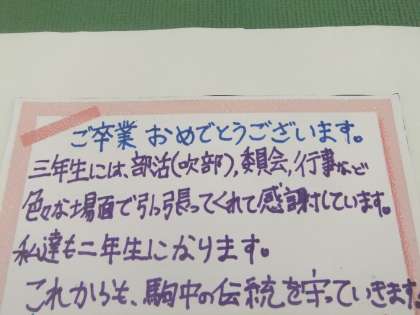 ご卒業 おめでとうございます。
三年生には、部活(吹部)、委員会、行事など
色々な場面で引っ張ってくれて感謝しています。
私達も二年生になります。
これからも、駒中の伝統を守っていきます